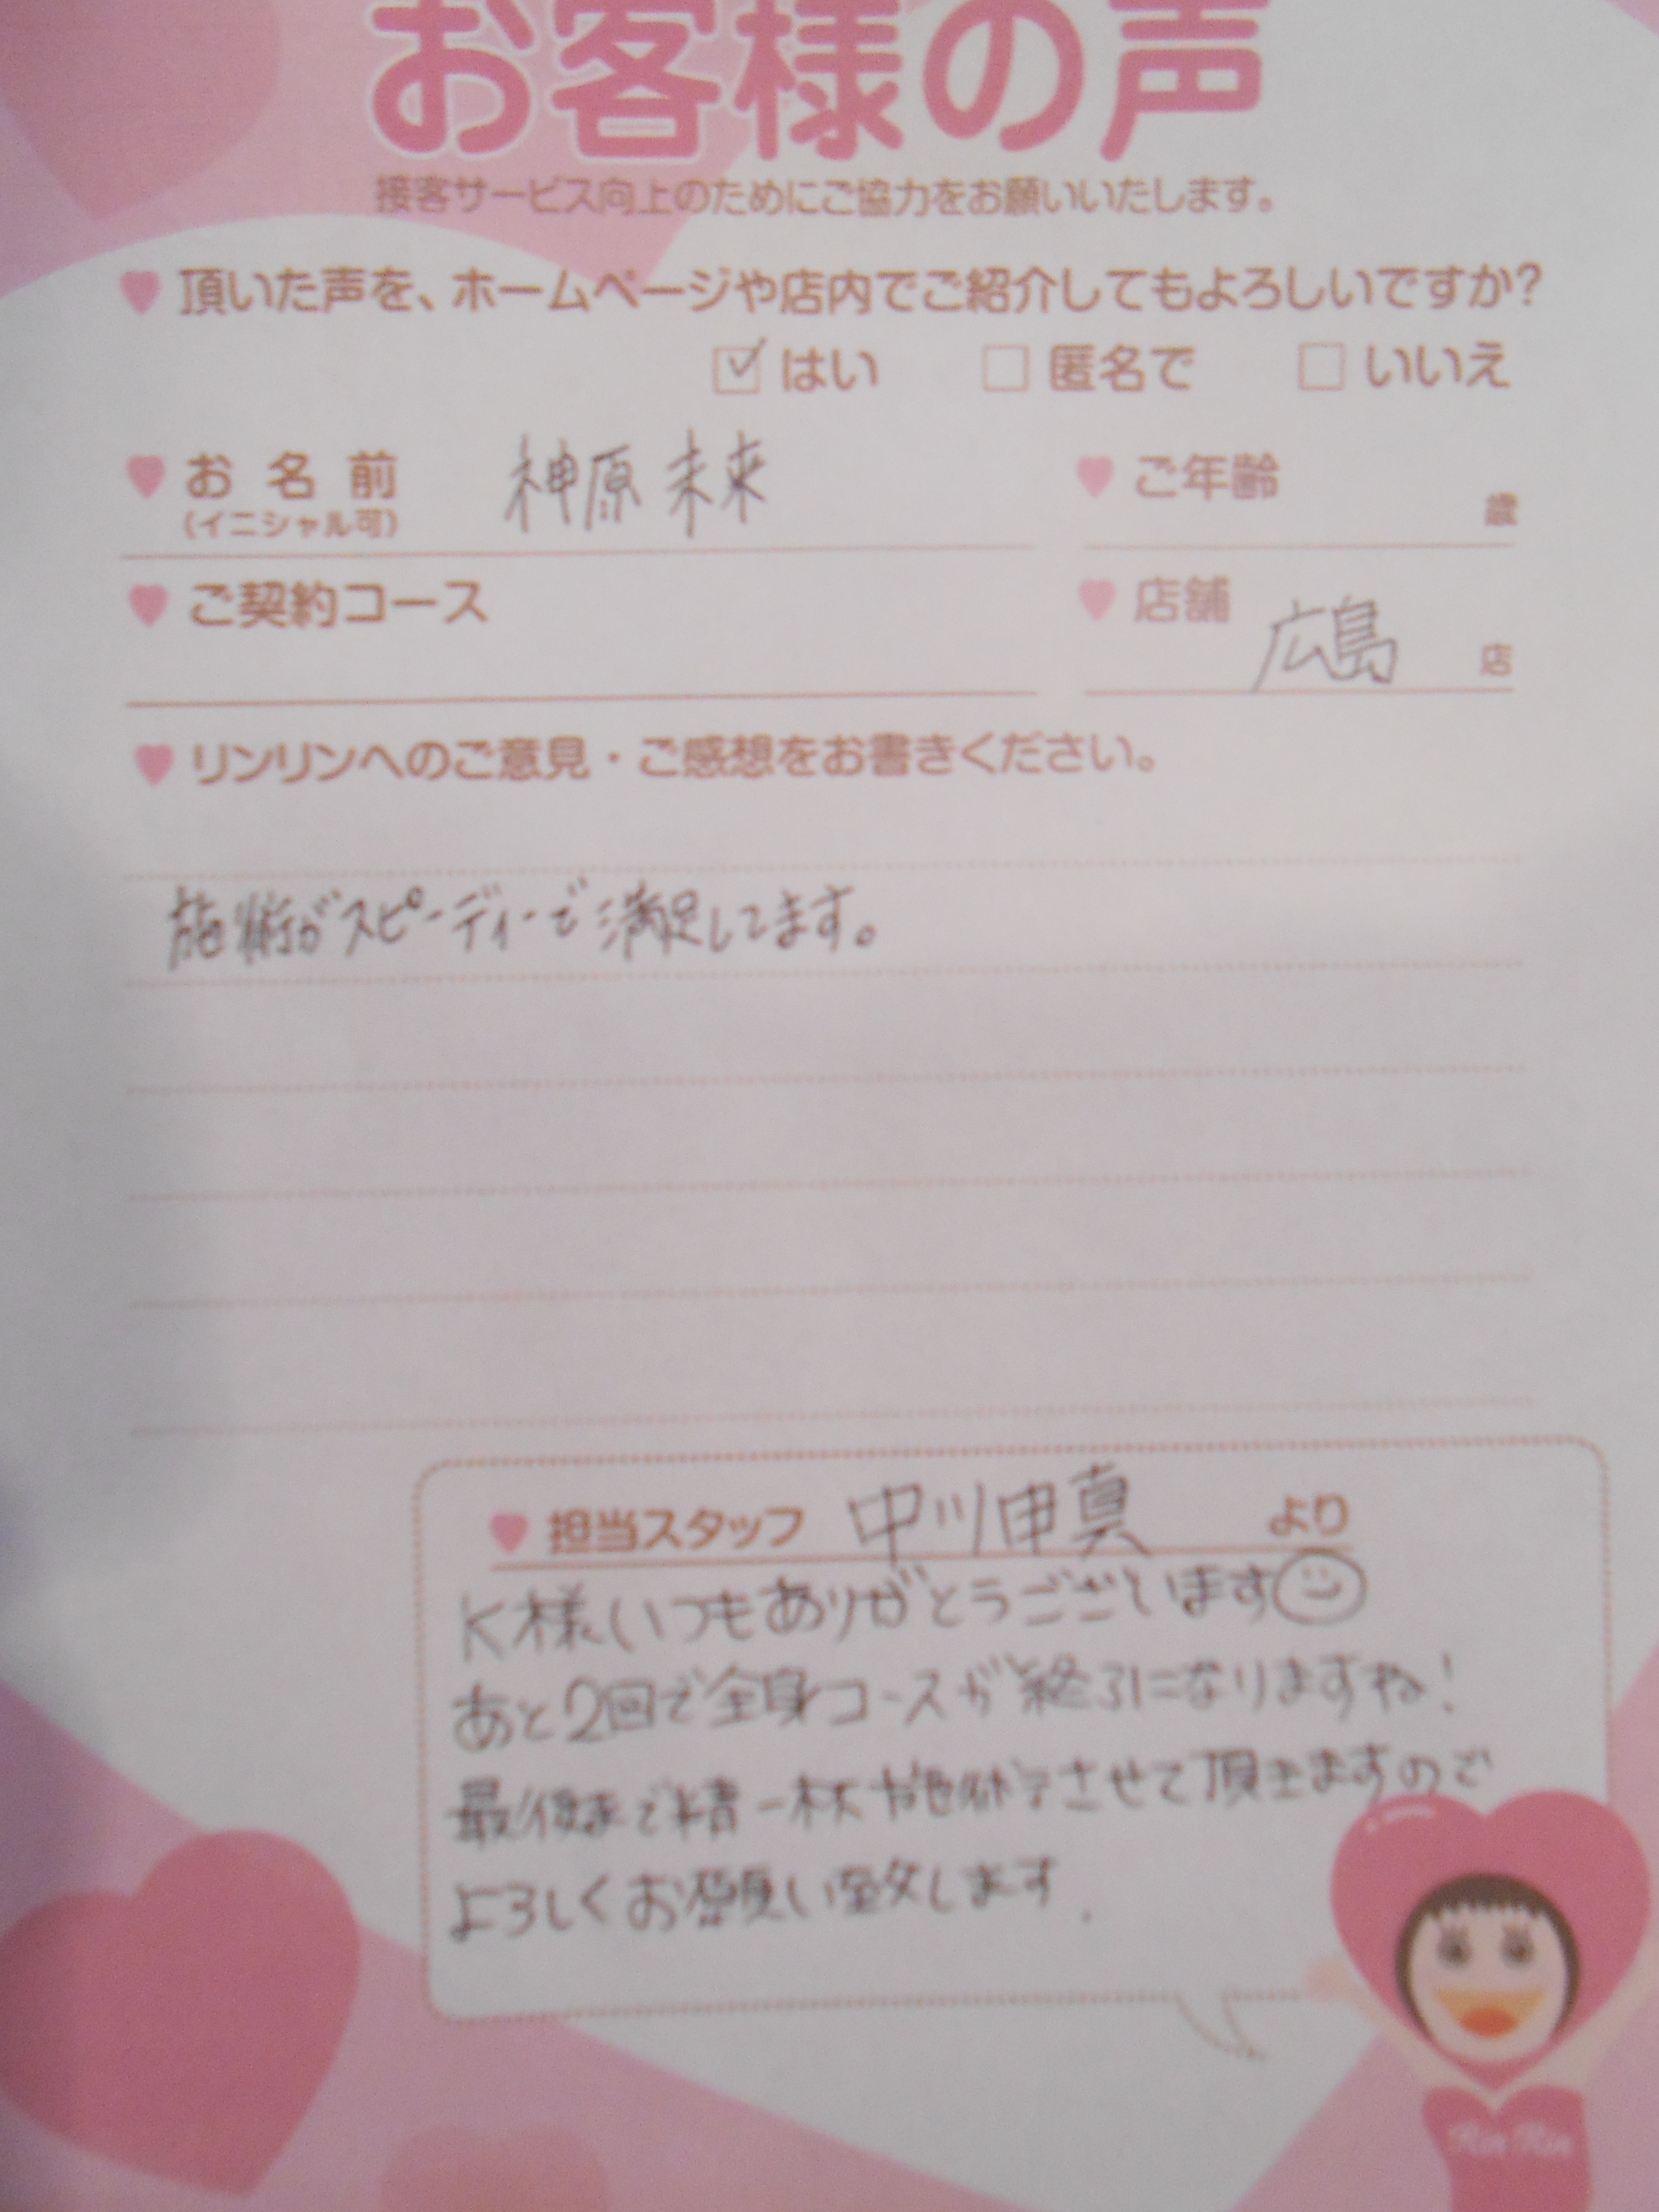 お客様の声
接客サービス向上のためにご協力をお願いいたします。
頂いた声を、ホームページや店内でご紹介してもよろしいですか?
はい 匿名で いいえ
お名前 神原 未来 ご年齢
(イニシャル可) 歳
ご契約コース 店舗 広島 店
リンリンへのご意見・ご感想をお書きください。
施術がスピーディーで満足してます。
担当スタッフ 中川申真 より
K様いつもありがとうございます
あと2回で全身コースが終了になりますね!
最後まで精一杯施術させて頂きますので
よろしくお願い致します.
Rin Rin